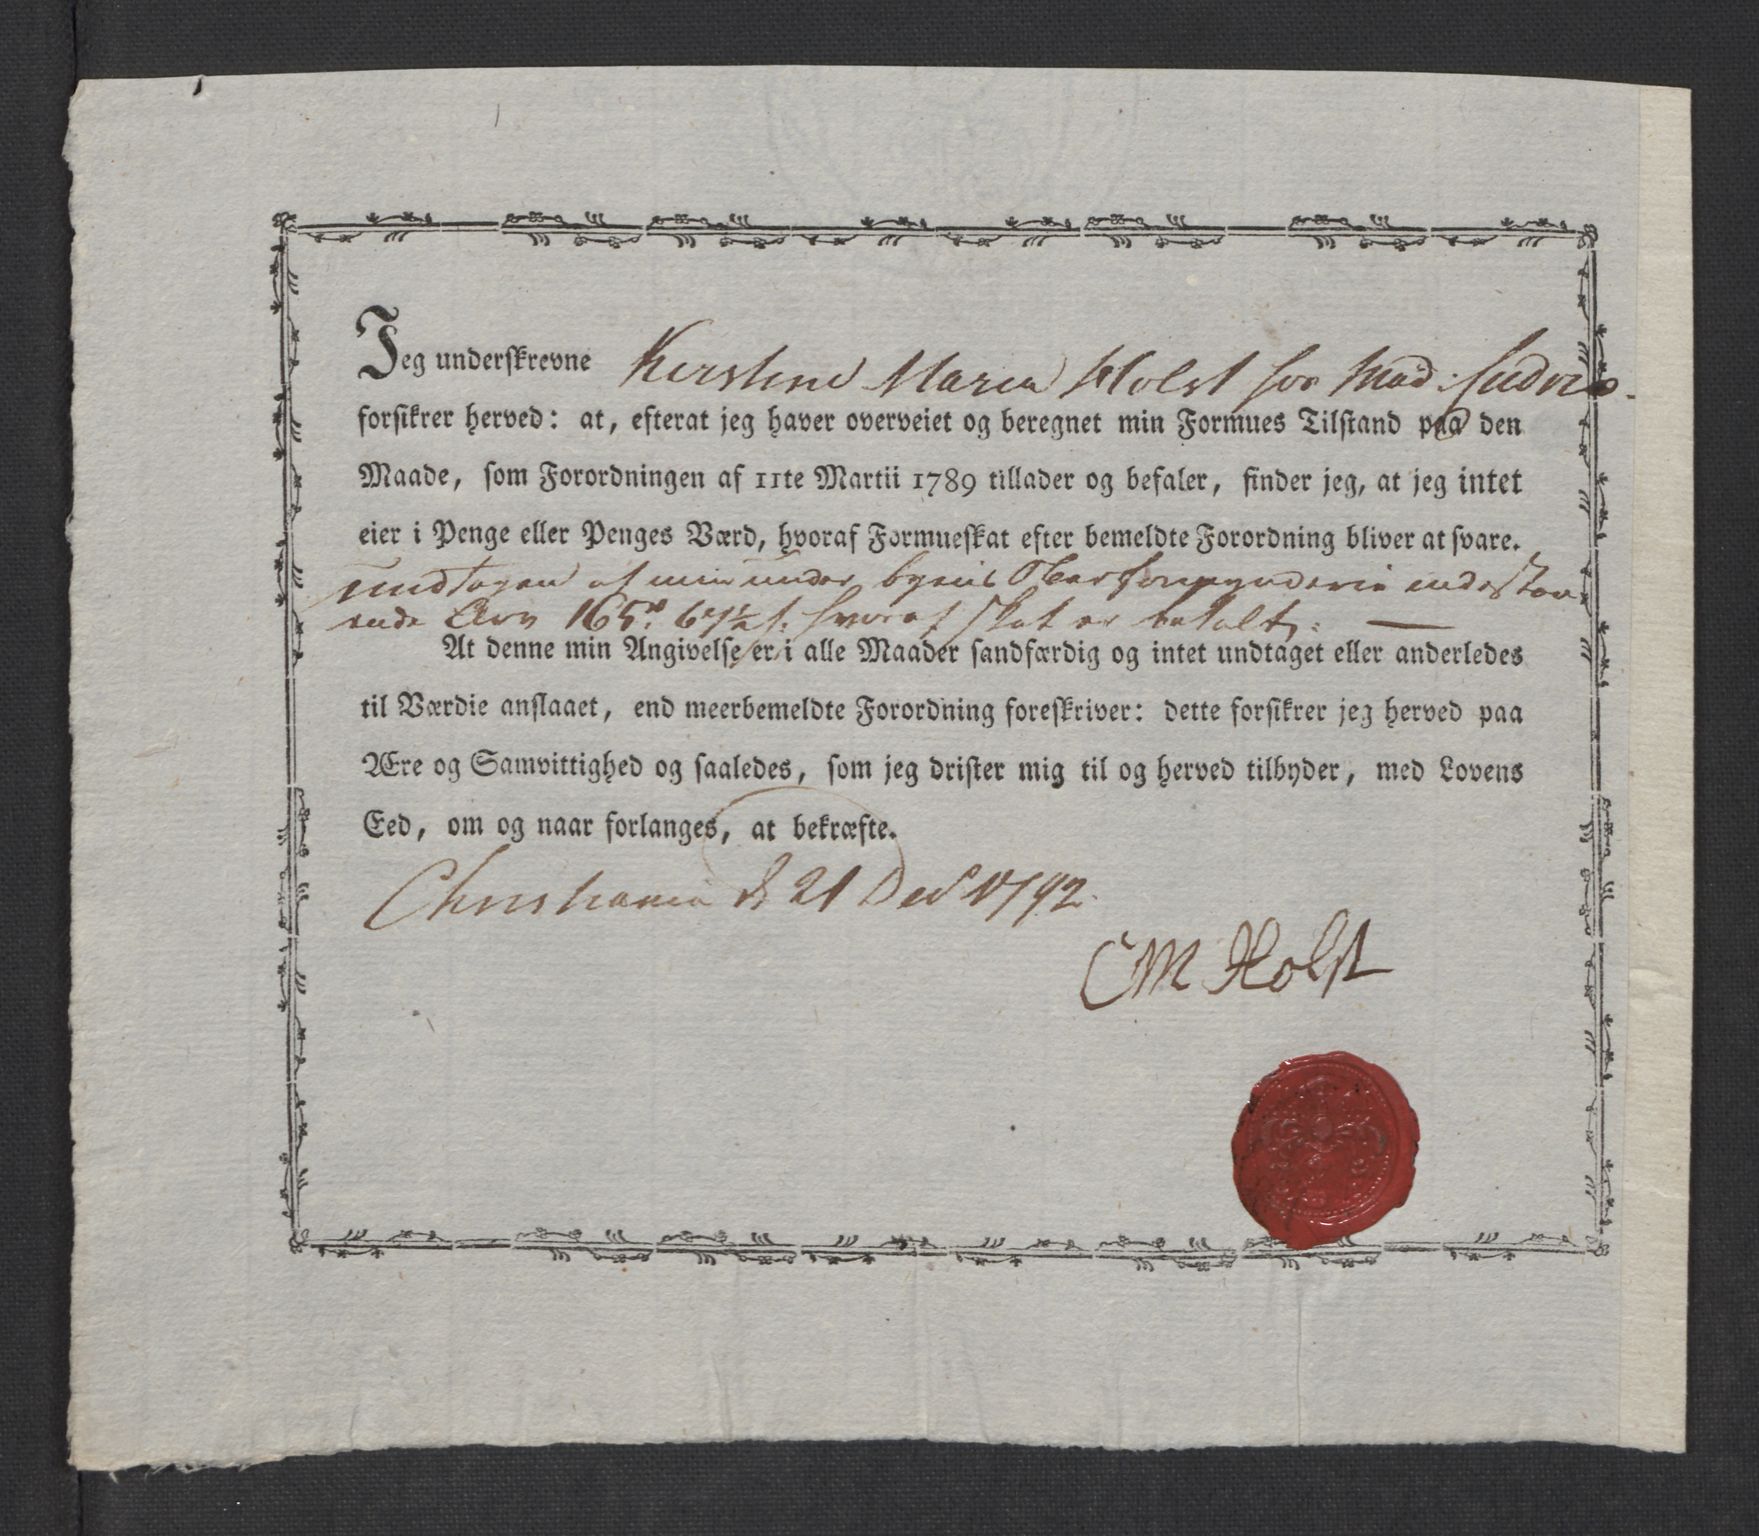 Jeg underskrevne Kirstine Maria Holst hos Mad:
forsikrer herved: at, efterat jeg haver overveiet og beregnet min Formues Tilstand paa den
Maade, som Forordningen af 11te Martii 1789 tillader og befaler, finder jeg, at jeg intet
eier i Penge eller Penges Værd, hvoraf Formueskat efter bemeldte Forordning bliver at svare.
undtagen af min under byens Oberformynderie indestaa-
ende Arv 165 hvoraf Skat er betalt. —
At denne min Angivelse er i alle Maader sandfærdig og intet undtaget eller anderledes
til Værdie anslaaet, end meerbemeldte Forordning foreskriver: dette forsikrer jeg herved paa
Ære og Samvittighed og saaledes, som jeg drister mig til og herved tilbyder, med Lovens
Eed, om og naar forlanges, at bekræfte.
Christiania d 21 Decb 1792.
CM Holst